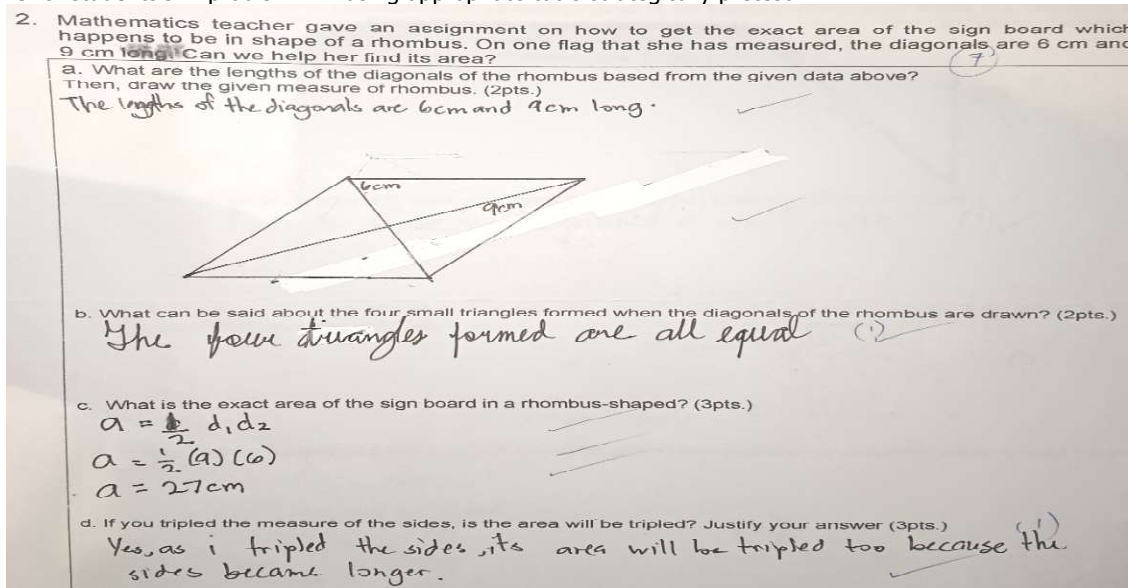 2. Mathematics teacher gave an assignment on how to get the exact area of the sign board which
happens to be in shape of a rhombus. On one flag that she has measured, the diagonals are 6 cm and
9 cm long. Can we help her find its area?
7
a. What are the lengths of the diagonals of the rhombus based from the given data above?
Then, draw the given measure of rhombus. (2pts.)
The lengths of the diagonals are 6cm and 9cm long.
6cm
9cm
b. What can be said about the four small triangles formed when the diagonals of the rhombus are drawn? (2pts.)
The four triangles formed are all equal (1)
c. What is the exact area of the sign board in a rhombus-shaped? (3pts.)
a = 1/2 d1d2
a = 1/2 (9) (6)
a = 27cm
d. If you tripled the measure of the sides, is the area will be tripled? Justify your answer (3pts.)
(1)
Yes, as i tripled the sides, its area will be tripled too because the
sides became longer.